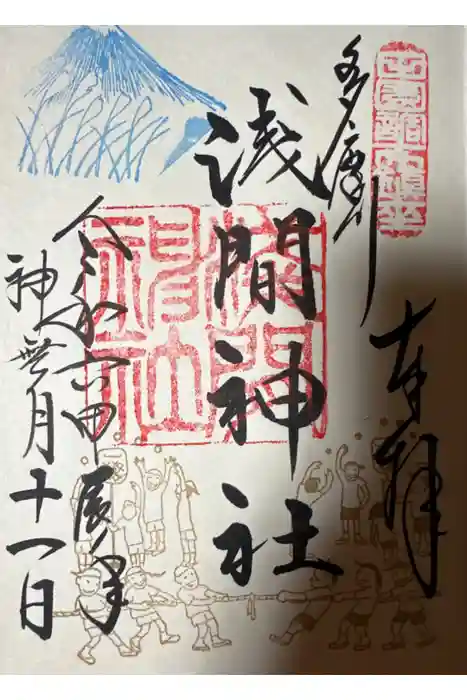 奉拝
多摩川
浅間神社
浅間
神社
令和六甲辰年
神無月十一日